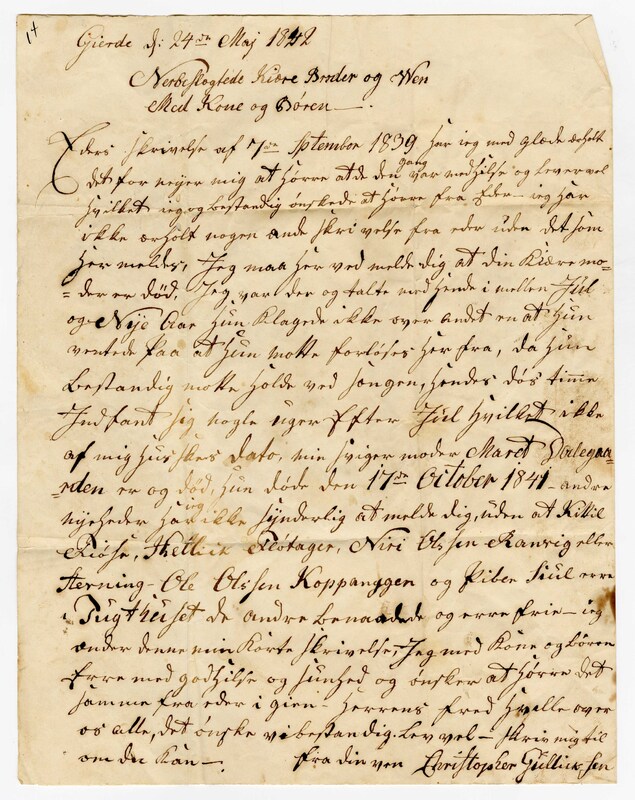 14
Gierde d: 24de Maj 1842
Nerbeslægtede Kiære Broder og Wen
Med Kone og Børen
Eders skrivelse af 7de Sptember 1839 har ieg med glæde ærholt
det fornøyer mig at Hørre at de den gang var med hilse og lever vel
hvilket ieg og bestandig ønskede at Hørre fra Eder ieg har
ikke ærholt nogen ande skrivelse fra eder uden det som
Her meldes, Jeg maa Her ved melde dig at din Kiære mo-
-der er død, Jeg var der og talte med Hende i mellen Jul
og Nye Aar Hun Klagede ikke over andet en at Hun
ventede paa at Hun motte forløses Her fra, da Hun
bestandig motte Holde ved sengen, Hendes døs time
Indfant sig nogle uger Efter Jul Hvilket ikke
af mig Husskes dato, min sviger moder Maret Dalegaa-
-rden er og død, Hun døde den 17de October 1841 andre
nyeheder Har ieg ikke synderlig at melde dig, uden at Kittil
Riøse, Hellick Fløtager, Niri Olssen Ranvig eller
Herning - Ole Olssen Koppanggen og Piber Siul erre
i Tugtheiset de andre benaadede og erre frie - ieg
ænder denne min Korte skrivelse, Jeg med Kone og Børen
Erre med god Hilse og sunhed og ønsker at Hørre det
samme fra eder i gien - Herrens fred Hville over
os alle, det ønske vi bestandig. Lev vel - skriv mig til
om du Kan - fra din ven Christopher Gullickssen